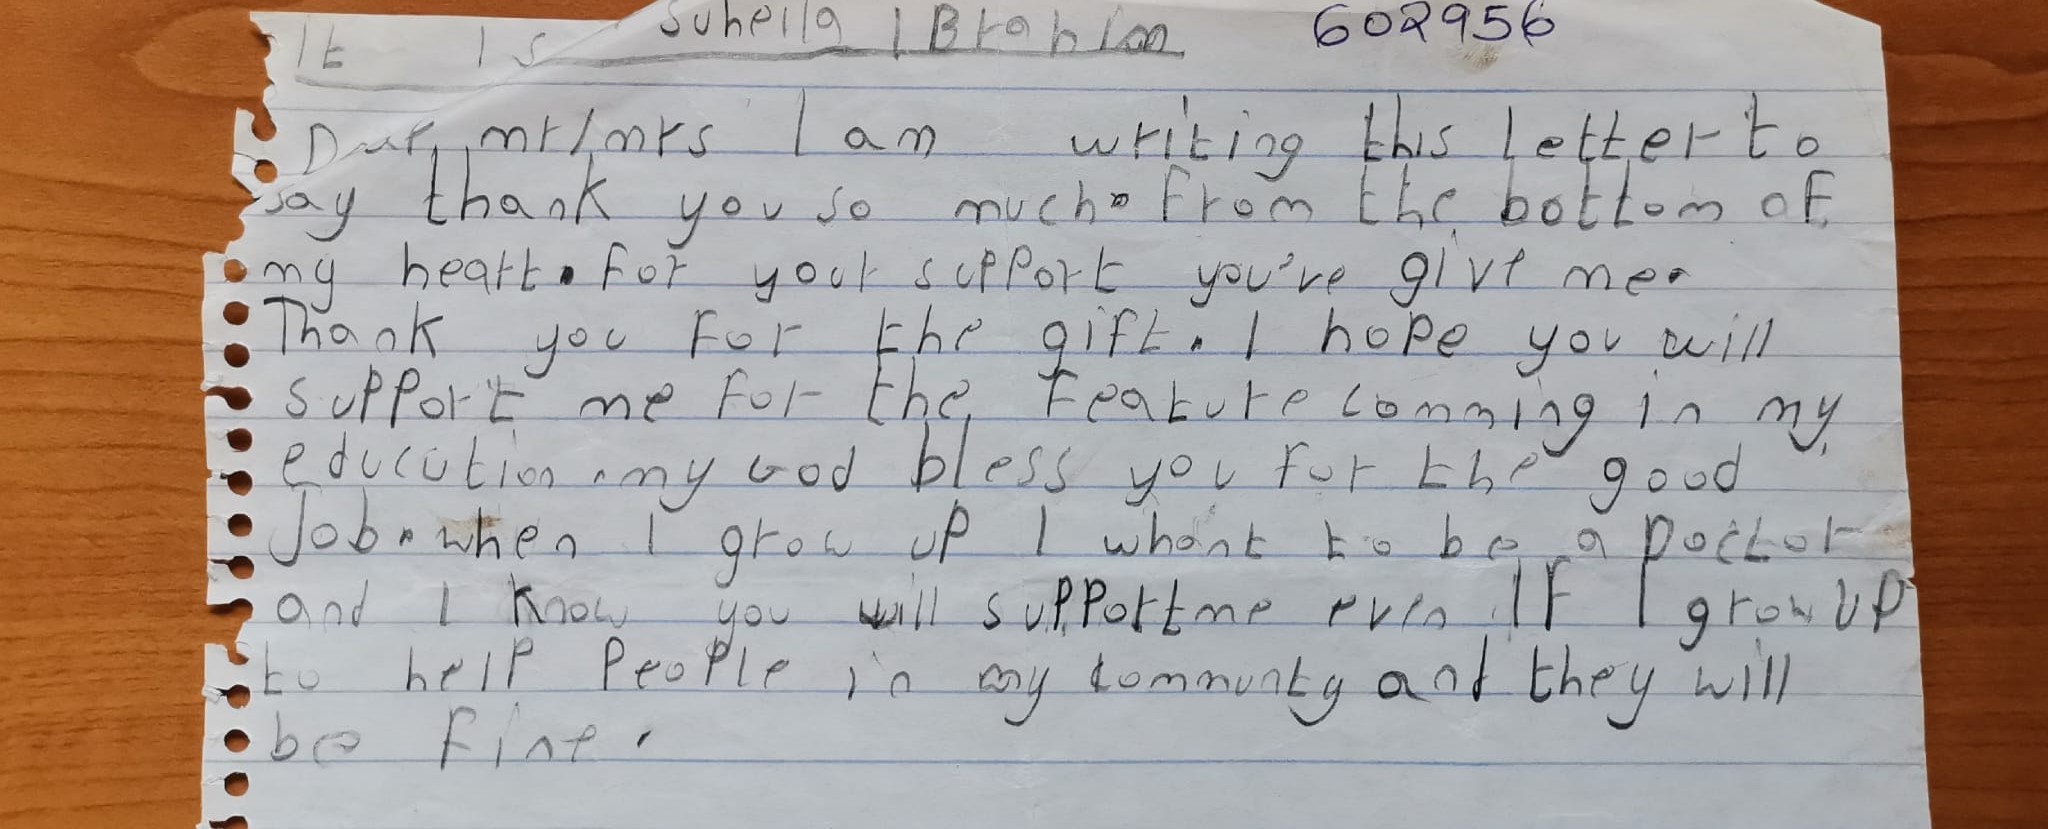 It Is Suheila IBrahim 602956
Dear mr/mrs I am writing this letter to
say thank you so much. From the bottom of
my heart. for your support you've give me.
Thank you for the gift. I hope you will
support me for the Feature comming in my
education. my God bless you for the good
Job. when I grow up I whant to be a Doctor
and I know you will support me even If I grow up
to help People in my communty and they will
be fine.